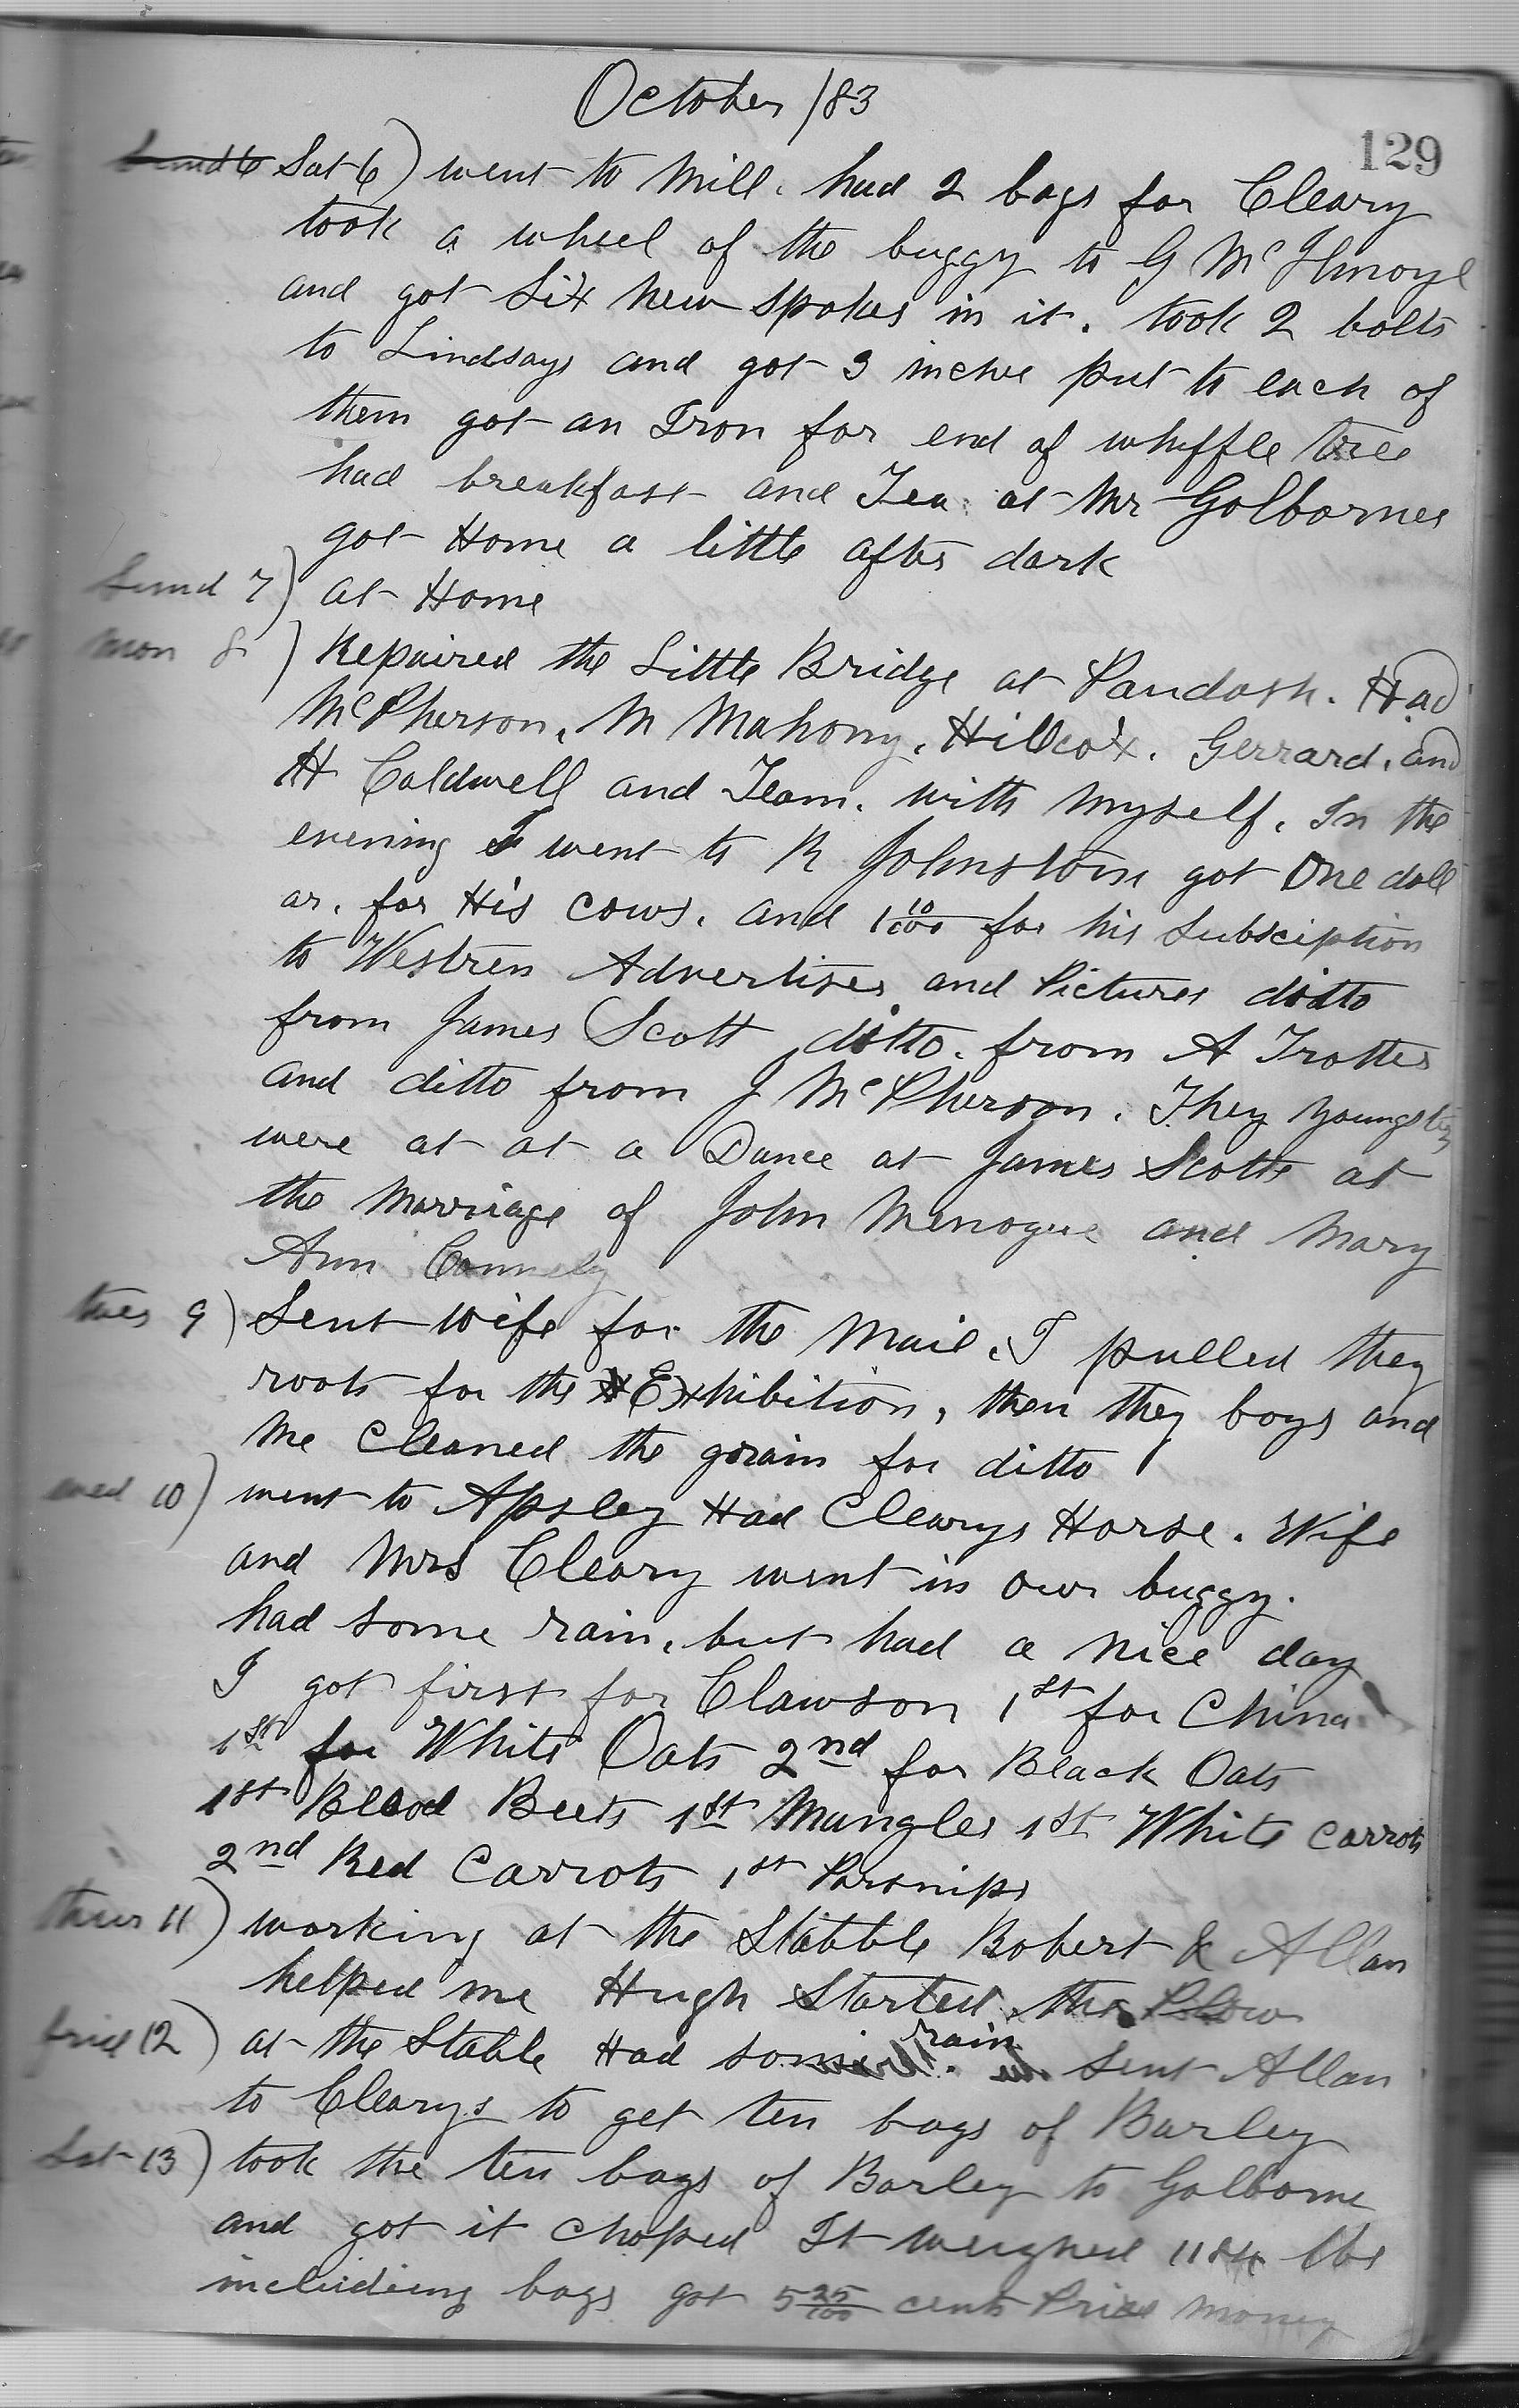 October /83
129
Sund 6 Sat 6) went to Mill. had 2 bags for Cleary
took a wheel of the buggy to G McIlmoyl
and got Six New Spokes in it. took 2 bolts
to Lindsays and got 3 inche put to each of
them got an Iron for end of whiffle tree
had breakfast and Tea at Mr Golbornes
got Home a little after dark
Sund 7) at Home
Mon 8) Repaired the Little Bridge at Paudash. Had
McPherson, M Mahony, Hillcox. Gerrard, and
H Caldwell and Team. with myself. In the
evening I went to R Johnston got One doll
ar. for His cows. and 1 10/100 for his Subsciption
to Westren Advertiser and Pictures ditto
from James Scott ditto. from A Trotter
and ditto from J McPherson. They Youngsters
were at at a Dance at James Scotts at
the Marriage of John Menogue and Mary
Ann Connely
tues 9) Sent wife for the Mail. I pulled they
roots for the Exhibition, then they boys and
Me Cleaned the grain for ditto
wed 10) went to Apsley Had Clearys Horse. Wife
and Mrs Cleary went in our buggy.
had some rain. but had a nice day
I got first for Clawson 1st for China
1st for White Oats 2nd for Black Oats
1st Blood Beets 1st Mangles 1st White Carrots
2nd Red Carrots 1st Parsnips
thur 11) working at the Stabble Robert & Allan
helped me Hugh Started the Plow
frid 12) at the Stable Had some rain. Sent Allan
to Clearys to get ten bags of Barley
Sat 13) took the ten bags of Barley to Golborne
and got it Choped It weighed 1184 lbs
includieng bags got 5 25/100 cents Prize Money